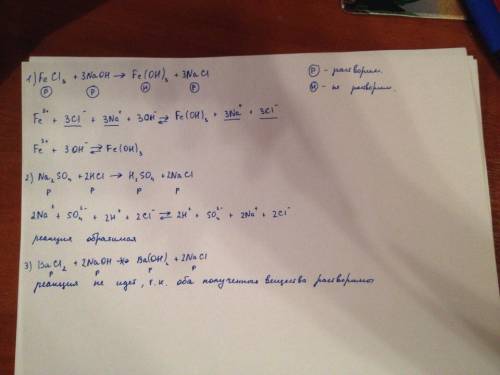 1) FeCl₃ + 3NaOH → Fe(OH)₃ + 3NaCl
Р Р Н Р
Р - растворим.
Н - не растворим.
Fe³⁺ + 3Cl⁻ + 3Na⁺ + 3OH⁻ ⇄ Fe(OH)₃ + 3Na⁺ + 3Cl⁻
Fe³⁺ + 3OH⁻ ⇄ Fe(OH)₃
2) Na₂SO₄ + 2HCl → H₂SO₄ + 2NaCl
Р Р Р Р
2Na⁺ + SO₄²⁻ + 2H⁺ + 2Cl⁻ ⇄ 2H⁺ + SO₄²⁻ + 2Na⁺ + 2Cl⁻
реакция обратимая
3) BaCl₂ + 2NaOH → Ba(OH)₂ + 2NaCl
Р Р Р Р
реакция не идет, т.к. оба полученных вещества растворимы